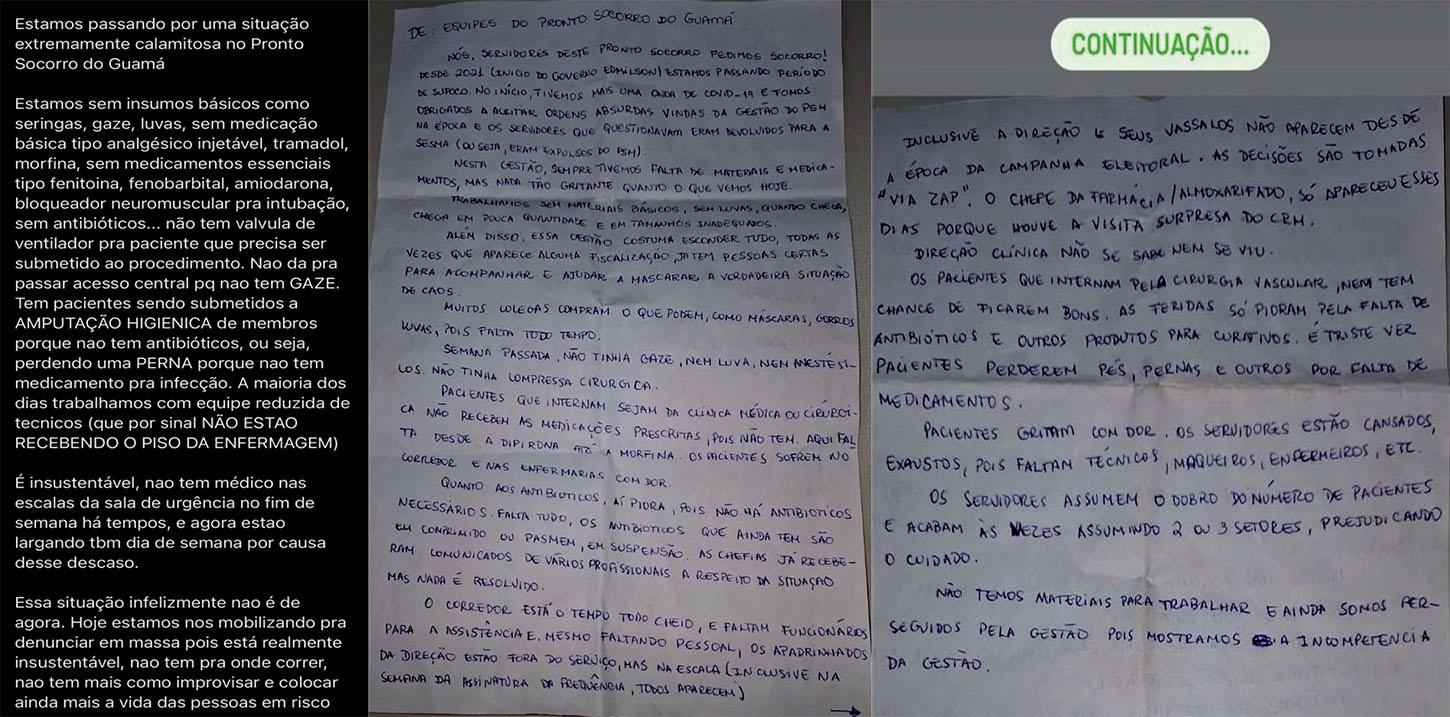 Estamos passando por uma situação
extremamente calamitosa no Pronto
Socorro do Guamá
Estamos sem insumos básicos como
seringas, gaze, luvas, sem medicação
básica tipo analgésico injetável, tramadol,
morfina, sem medicamentos essenciais
tipo fenitoina, fenobarbital, amiodarona,
bloqueador neuromuscular pra intubação,
sem antibióticos... não tem valvula de
ventilador pra paciente que precisa ser
submetido ao procedimento. Nao da pra
passar acesso central pq nao tem GAZE.
Tem pacientes sendo submetidos a
AMPUTAÇÃO HIGIENICA de membros
porque nao tem antibióticos, ou seja,
perdendo uma PERNA porque nao tem
medicamento pra infecção. A maioria dos
dias trabalhamos com equipe reduzida de
tecnicos (que por sinal NÃO ESTAO
RECEBENDO O PISO DA ENFERMAGEM)
É insustentável, nao tem médico nas
escalas da sala de urgência no fim de
semana há tempos, e agora estao
largando tbm dia de semana por causa
desse descaso.
Essa situação infelizmente nao é de
agora. Hoje estamos nos mobilizando pra
denunciar em massa pois está realmente
insustentável, nao tem pra onde correr,
nao tem mais como improvisar e colocar
ainda mais a vida das pessoas em risco
DE: EQUIPES DO PRONTO SOCORRO DO GUAMÁ
NÓS, SERVIDORES DESTE PRONTO SOCORRO PEDIMOS SOCORRO!
DESDE 2021 (INICIO DO GOVERNO EDMILSON) ESTAMOS PASSANDO PERÍODO
DE SUFOCO. NO INÍCIO, TIVEMOS MAIS UMA ONDA DE COVID-19 E FOMOS
OBRIGADOS A ACEITAR ORDENS ABSURDAS VINDAS DA GESTÃO DO PSM
NA ÉPOCA E OS SERVIDORES QUE QUESTIONAVAM ERAM DEVOLVIDOS PARA A
SESMA (OU SEJA, ERAM EXPULSOS DO PSM).
NESTA GESTÃO, SEMPRE TIVEMOS FALTA DE MATERIAIS E MEDICA-
MENTOS, MAS NADA TÃO GRITANTE QUANTO O QUE VEMOS HOJE.
TRABALHAMOS SEM MATERIAIS BÁSICOS, SEM LUVAS, QUANDO CHEGA,
CHEGA EM POUCA QUANTIDADE E EM TAMANHOS INADEQUADOS.
ALÉM DISSO, ESSA GESTÃO COSTUMA ESCONDER TUDO, TODAS AS
VEZES QUE APARECE ALGUMA FISCALIZAÇÃO, JÁ TEM PESSOAS CERTAS
PARA ACOMPANHAR E AJUDAR A MASCARAR A VERDADEIRA SITUAÇÃO
DE CAOS.
MUITOS COLEGAS COMPRAM O QUE PODEM, COMO MÁSCARAS, GORROS
LUVAS, POIS FALTA TODO TEMPO.
SEMANA PASSADA, NÃO TINHA GAZE, NEM LUVA, NEM ANESTÉSI-
COS. NÃO TINHA COMPRESSA CIRURGICA.
PACIENTES QUE INTERNAM SEJAM DA CLÍNICA MÉDICA OU CIRÚRGI-
CA NÃO RECEBEM AS MEDICAÇÕES PRESCRITAS, POIS NÃO TEM. AQUI FAL
TA DESDE A DIPIRONA ATÉ A MORFINA. OS PACIENTES SOFREM NO
CORREDOR E NAS ENFERMARIAS COM DOR.
QUANTO AOS ANTIBIOTICOS, AÍ PIORA, POIS NÃO HÁ ANTIBIOTICOS
NECESSÁRIOS. FALTA TUDO, OS ANTIBIOTICOS QUE AINDA TEM SÃO
EM COMPRIMIDO OU PASMEM, EM SUSPENSÃO. AS CHEFIAS JÁ RECEBE-
RAM COMUNICADOS DE VÁRIOS PROFISSIONAIS A RESPEITO DA SITUAÇÃO
MAS NADA É RESOLVIDO.
O CORREDOR ESTÁ O TEMPO TODO CHEIO, E FALTAM FUNCIONÁRIOS
PARA A ASSISTÊNCIA E, MESMO FALTANDO PESSOAL, OS APADRINHADOS
DA DIREÇÃO ESTÃO FORA DO SERVIÇO, MAS NA ESCALA (INCLUSIVE NA
SEMANA DA ASSINATURA DA FREQUÊNCIA, TODOS APARECEM)
CONTINUAÇÃO...
INCLUSIVE A DIREÇÃO E SEUS VASSALOS NÃO APARECEM DESDE
A ÉPOCA DA CAMPANHA ELEITORAL. AS DECISÕES SÃO TOMADAS
"VIA ZAP". O CHEFE DA FARMÁCIA/ALMOXARIFADO, SÓ APARECEU ESSES
DIAS PORQUE HOUVE A VISITA SURPRESA DO CRM.
DIREÇÃO CLÍNICA NÃO SE SABE NEM SE VIU.
OS PACIENTES QUE INTERNAM PELA CIRURGIA VASCULAR, NEM TEM
CHANCE DE FICAREM BONS. AS FERIDAS SÓ PIORAM PELA FALTA DE
ANTIBIÓTICOS E OUTROS PRODUTOS PARA CURATIVOS. É TRISTE VER
PACIENTES PERDEREM PÉS, PERNAS E OUTROS POR FALTA DE
MEDICAMENTOS.
PACIENTES GRITAM COM DOR. OS SERVIDORES ESTÃO CANSADOS,
EXAUSTOS, POIS FALTAM TÉCNICOS, MAQUEIROS, ENFERMEIROS, ETC.
OS SERVIDORES ASSUMEM O DOBRO DO NÚMERO DE PACIENTES
E ACABAM ÀS VEZES ASSUMINDO 2 OU 3 SETORES, PREJUDICANDO
O CUIDADO.
NÃO TEMOS MATERIAIS PARA TRABALHAR E AINDA SOMOS PER-
SEGUIDOS PELA GESTÃO POIS MOSTRAMOS A INCOMPETENCIA
DA GESTÃO.